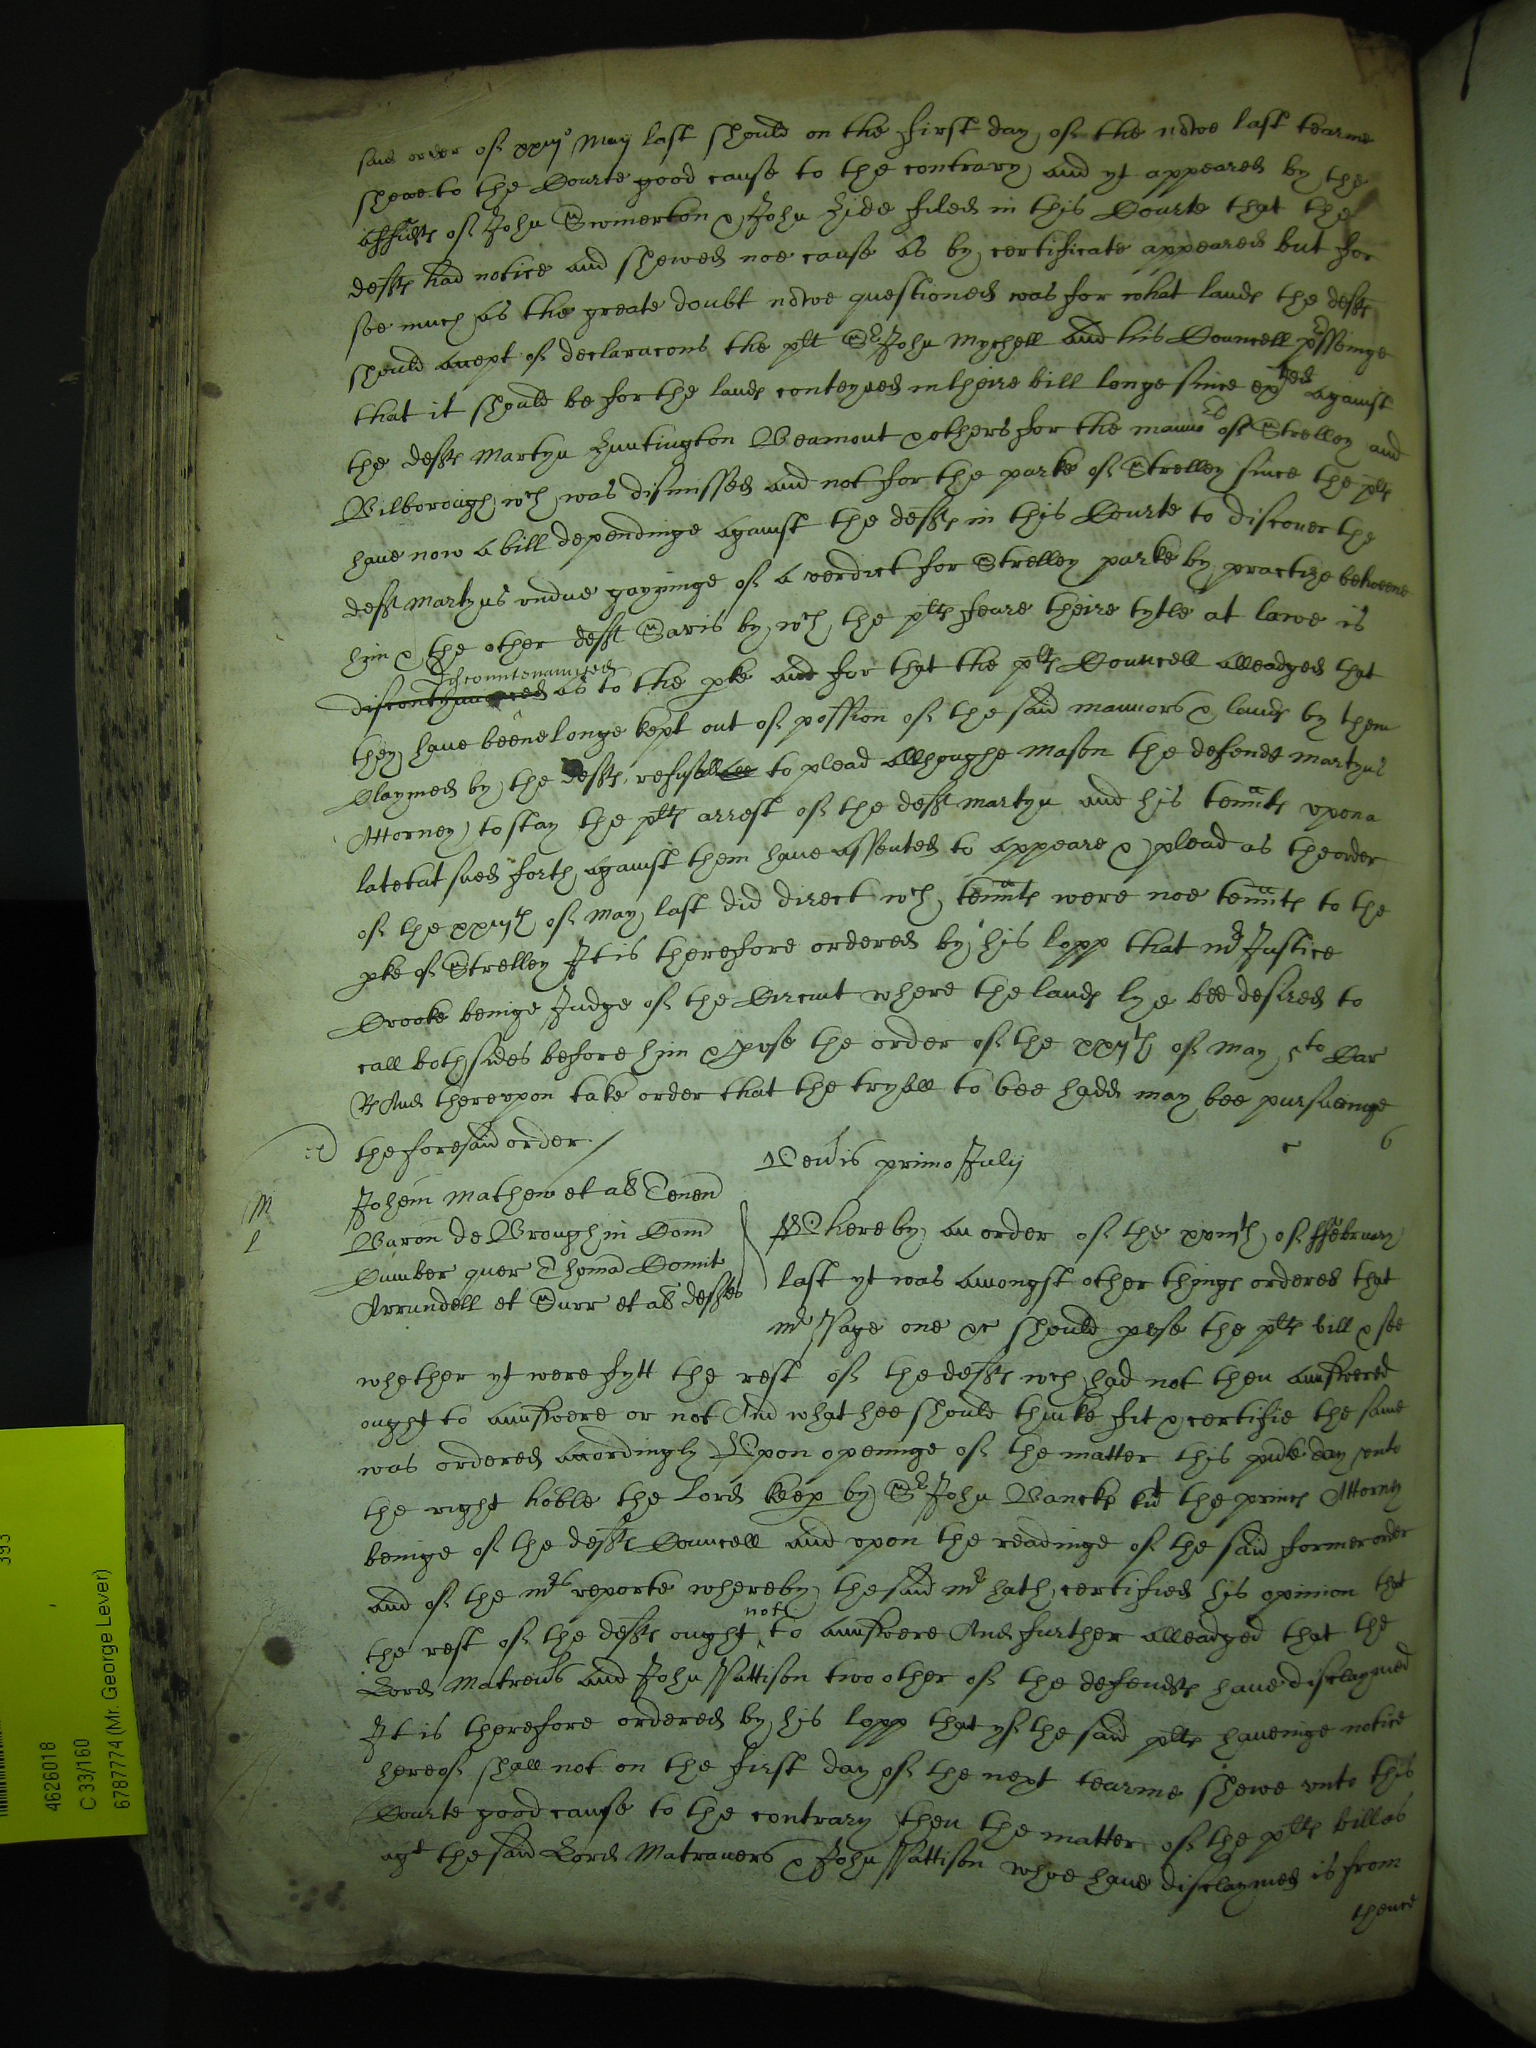 said order of xxvjo Maij last should on the first day of the nowe last tearme
shewe to the Courte good cause to the contrary and yt appeared by the
affidts of John Swinerton & John Hide filed in this Courte that the
defts had notice and shewed noe cause as by certificate appeared but for
soe much as the greate doubt nowe questioned was for what lands the defts
should accept of declaracons the plt Sr John Mychell and his Councell pressinge
that it should be for the lands conteyned in theire bill longe since exhted against
the defts Martyn Huntington Beamont & others for the mannor of Strelley and
Bilborough wch was dismissed and not for the parke of Strelley since the plts
haue now a bill dependinge against the defts in this Courte to discouer the
deft Martyns vndue gayninge of a verdict for Strelley parke by practize betweene
him & the other deft Savis by wch the plts feare theire tytle at lawe is
discountenanced
as to the pke and for that the plts Councell alleadged that
they haue beene longe kept out of possion of the said mannors & lands by them
Claymed by the defts refusall to plead allthoughe Mason the defendt Martyns
Attorney to stay the plts arrest of the deft Martyn and his tennts vpon a
latetat sued forth against them haue assented to appeare & plead as the order
of the xxvjth of May last did direct wch tennts were noe tennts to the
pke of Strelley It is therefore ordered by his lopp that Mr Justice
Crooke beinge Judge of the Circuit where the lands lye bee desired to
call both sides before him & pvse the order of the xxvjth of May 5to Car
R And therevpon take order that the tryall to bee hadd may bee pursueinge
the foresaid order /
Veneris primo Julij
M
L
Johem Mathew et als Tenen
Baron de Brough in Com
Cumber quer Thomas Comit
Arrundell et Surr et als defts
Whereby an order of the xviijth of ffebruary
last yt was amongst other things ordered that
Mr Page one &c should pvse the plts bill & see
whether yt were fytt the rest of the defts wch had not then answered
ought to answere or not And what hee should thinke fit & certifie the same
was ordered accordingly Vpon openinge of the matter this pnte day vnto
the right hoble the Lord keep by Sr John Bancks kt the princs Attorny
beinge of the defts Councell and vpon the readinge of the said former order
and of the Mrs reporte whereby the said Mr hath certified his opinion that
the rest of the defts ought not to answere And further alleadged that the
Lord Matreuers and John Pattison two other of the defendts haue disclaymed
It is therefore ordered by his lopp that yf the said plts haueinge notice
hereof shall not on the first day of the next tearme shewe vnto this
Courte good cause to the contrary then the matter of the plts bill as
agt the said Lord Matrauers & John Pattison whoe haue disclaymed is from
thence
393
4626018
C 33/160
6787774 (Mr. George Lever)